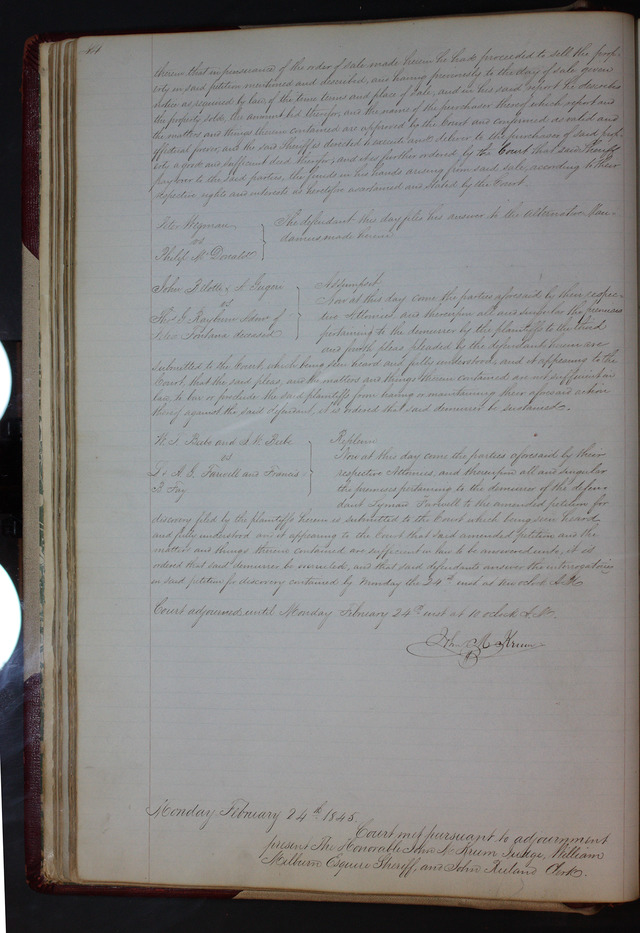 therein that in persuance of the order of sale made herein he had proceeded to sell the prop-
erty in said petition mentioned and described, and having previously to the day of sale given
notice as required by law, of the time terms and place of sale, and in his said report he describes
the property sold, the amount bid therefor, and the name of the purchaser thereof which report and
the matters and things therein contained are approved by the Court and confirmed as valid and
effectual forever, and the said Sheriff is directed to execute and deliver to the purchaser of said prop-
erty a good and sufficient deed therefor, and it is further ordered by the Court that said Sheriff
pay over to the said parties, the funds in his hands arising from said sale, according to their
respective rights and interests as heretofore ascertained and stated by the Court.
Peter Wegman
vs
Philip McDonald
The defendant this day files his answer to the Alternative Man-
damus made herein
John F.
vs
Thos. G. Rayburn Admr. of
Peter Fontana deceased
Assumpsit
Now at this day come the parties aforesaid by their respec-
tive Attornies, and thereupon all and singular the premises
pertaining to the demurrer by the plaintiffs to the third
and fourth pleas pleaded by the defendant herein are
submitted to the Court, which being seen heard and fully understood, and it appearing to the
Court, that the said pleas, and the matters and things therein contained are not sufficient in
law to bar or preclude the said plaintiffs from having or maintaining their aforesaid action
thereof against the said defendant, it is ordered that said demurrer be sustained.
Beebe and Beebe
vs
L & A. G. Farwell and Francis
B Fay
Replevin
Now at this day come the parties aforesaid by their
respective Attornies, and thereupon all and singular
the premises pertaining to the demurrer of the defen-
dant Lyman Farwell to the amended petition for
discovery filed by the plaintiffs herein is submitted to the Court which being seen heard
and fully understood and it appearing to the Court that said amended petition and the
matters and things therein contained are sufficient in law to be answered unto, it is
ordered that said demurrer be overruled, and that said defendants answer the interrogatories
in said petition for discovery contained by Monday the 24th inst at ten oclock A.M.
Court adjourned until Monday February 24th inst at 10 oclock A.M.
John M Krum
Monday February 24th 1845
Court met pursuant to adjournment
present The Honorable John M Krum Judge, William
Milburn Esquire Sheriff, and John Ruland Clerk.